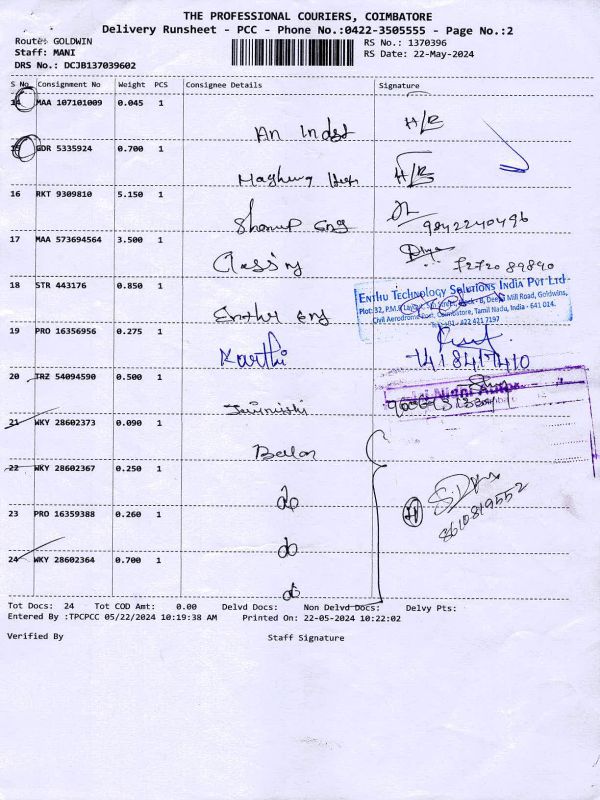 THE PROFESSIONAL COURIERS, COIMBATORE
Delivery Runsheet - PCC - Phone No.:0422-3505555 - Page No.:2
Route: GOLDWIN
RS No.: 1370396
Staff: MANI
RS Date: 22-May-2024
DRS No.: DCJB137039602
S No. Consignment No Weight PCS Consignee Details Signature
14 MAA 107101009 0.045 1
An Indst H/R
15 GDR 5335924 0.700 1
H/R
16 RKT 9309810 5.150 1
Eng 9842240496
17 MAA 573694564 3.500 1
Classiy Divya
7272089890
18 STR 443176 0.850 1
Enthu Eng
Enthu Technology Solutions India Pvt Ltd
Plot: 32, Mill Road, Goldwins,
Civil Aerodrome Post, Coimbatore, Tamil Nadu, India - 641 014.
19 PRO 16356956 0.275 1
Karthi 7418417410
20 TRZ 54094590 0.500 1
21 WKY 28602373 0.090 1
22 WKY 28602367 0.250 1
do
8610819552
23 PRO 16359388 0.260 1
do
24 WKY 28602364 0.700 1
do
Tot Docs: 24 Tot COD Amt: 0.00 Delvd Docs: Non Delvd Docs: Delvy Pts:
Entered By :TPCPCC 05/22/2024 10:19:38 AM Printed On: 22-05-2024 10:22:02
Verified By Staff Signature